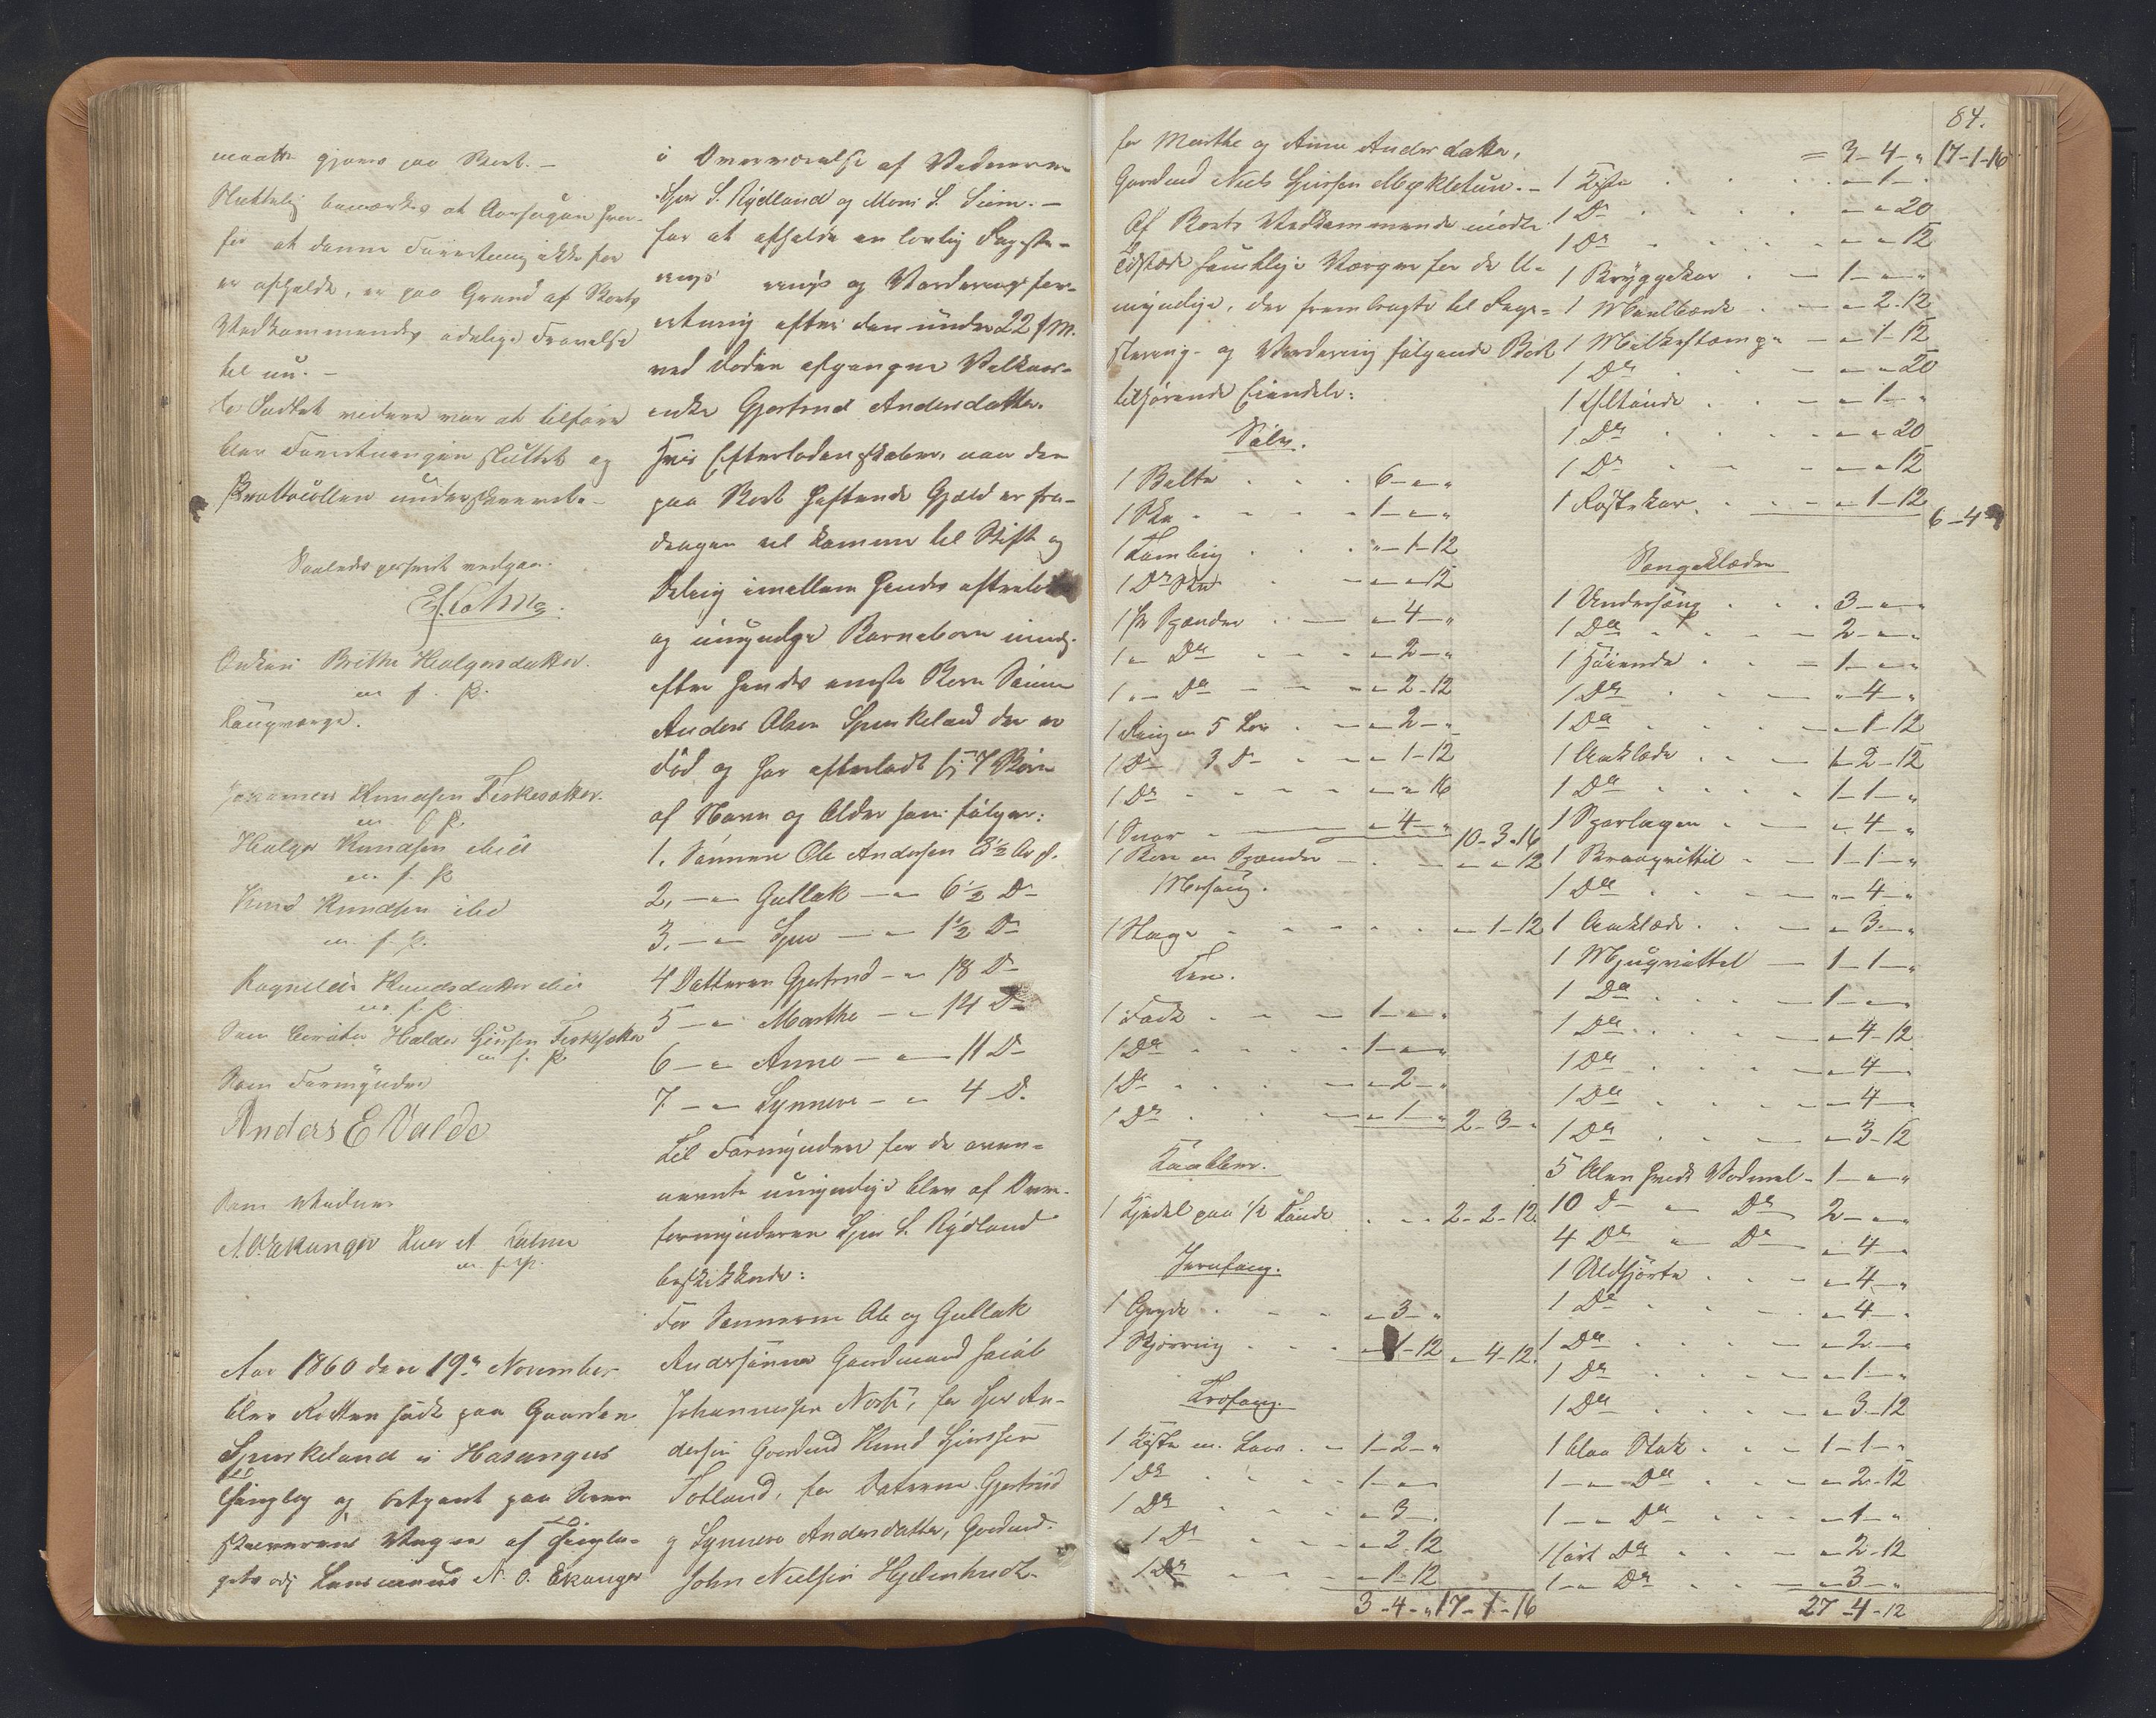 maatte gjøres paa Boet. -
Sluttelig bemærkes at Aarsagen hvor-
for at denne Forretning ikke før
er afholdt, er paa Grund af Boets
Vedkommendes Fraværelse
til nu. -
da Intet videre var at tilføre
blev Forretningen sluttet og
Protocollen underskrevet. -
Saaledes passeret vedgaar.
Enken Brithe Helgesdatter.
m. f. P.
Laugværge.
Johannes Knudsen Fiskesætter.
m. f. P.
Helge Knudsen ibid
m. f. P.
Knud Knudsen ibid
m. f. P.
Ragnilde Knudsdatter ibid
m. f. P.
Som Curator Haldor Giørsen Fiskesætter
m. f. P.
Som Formynder
Anders E Valde
Som Vidner
N. O. Ekanger
m. f. P.
Aar 1860 den 19de November
blev Retten sadt paa Gaarden
Spurkeland i Hosangers
Thinglag og betjent paa Soren-
skriverens Vegne af Thingla-
gets Lensmand N. O. Ekanger
i Overværelse af Vidnerne
Sjur S. Rydland og Mons S. Siem. -
for at afholde en lovlig Registe-
rings og Vurderingsfor-
retning efter den under 22 f. M.
ved Døden afgangne Velkaars-
enke Gjertrud Andersdatter.
Hvis Efterladenskaber, naar den
paa Boet heftende Gjæld er fra-
dragen vil komme til Skift og
Deling imellem hendes efterladte
og umyndige Barnebørn
efter hendes eneste Børn Sønn
Anders Olsen Spurkeland der er
død og har efterladt sig 7 Børn
af Navn og Alder som følger:
1. Sønnen Ole Andersen 8½ Aar gl.
2, — " — Gullak — " — 6½ Do
3, — " — Sjur — " — 1½ Do
4 Datteren Gjertrud — " 18 Do
5 — " — Marthe — " 14 Do
6 — " — Anne — " — 11 Do
7 — " — Synneve — " 4 Do.
Til Formyndere for de oven-
nævnte umyndige blev af Over-
formynderen Sjur S. Rydland
beskikkede:
For Sønnerne Ole og Gullak
Anderssønner Gaardmand
Johannesen , for Sjur An-
dersen Gaardmd Knud Giørsen
Totland, for Døtrene Gjertrud
og Synneve Andersdatter, Gaardmd.
John Nielsen
84.
for Marthe og Anne Andersdatter,
Gaardmd Niels Giørsen Mykletun. -
Af Boets Vedkommende mødte
Tilstæde samtlige Værger for de U-
myndige, der frembragte til Regi-
strering- og Vurdering følgende Boet
tilhørende Eiendele:
Sølv.
1 Belte . . . 6 — " — "
1 Ske . . . 1 — " — "
1 Tumling . . . " — 1 — 12
1 Do Ske . . — " — " 12
1 pr Spænder . . — " — 4 — "
1 " Do . . — " — 2 — "
1 " — Do . . — " — 2 — 12
1 Ring m 5 Løv . . — " — 2 — "
1 Do 3 Do . . — " — 1 — 12
1 Do . . — " — " 16
1 Snor . . — " — 4 — " 10 — 3 — 16
1 Spænder . . — " — " 12
Messing.
1 Stage . . . — " — 1 — 12
Tin.
1 Fad . . . 1 — " — "
1 Do . . . 1 — " — "
1 Do . . . — " — 2 — "
1 Do . . . — " — 1 — " 2 — 3 — "
Kaabber.
1 Kjedel paa ½ Tønde . . . 2 — 2 — 12
Jernfang.
1 Gryde . . . — " — 3 — "
1 . . . — " — 1 — 12 — " — 4 — 12
Træfang.
1 Kiste m. Laas . . — 1 — 2 — "
1 Do . . . 1 — " — "
1 Do . . . — " — 3 — "
1 Do . . . — " — 2 — 12
1 Do . . . — " — 1 — 12
3 — 4 — " 17 — 1 — 16
= 3 — 4 — " 17 — 1 — 16
1 Kiste . . . — " — 1 — "
1 Do . . . — " — " 20
1 Do . . . — " — " 12
1 Bryggekar . . — 1 — " — "
1 . . — " — 2 — 12
1 Melkestamp — " — 1 — 12
1 Do . . — " — " 20
1 Øltønde . . . — " — 1 — "
1 Do . . . — " — " 20
1 Do . . . — " — " 12
1 Røstekar . . . — " — 1 — 12 6 — 4 — "
Sengeklæder
1 Underseng . . . 3 — " — "
1 Do . . . 2 — " — "
1 Høiende . . . 1 — " — "
1 Do . . . " — 4 — "
1 Do . . . — " — 1 — 12
1 Aaklæde . . . 1 — 2 — 12
1 Do . . . 1 — 1 — "
1 Sparlagen . . . — " — 4 — "
1 . . . 1 — 1 — "
1 Do . . . " — 4 — "
1 Aaklæde . . . — " — 3 — "
1 — 1 — 1 — "
1 Do . . . 1 — " — "
1 Do . . . — " — 4 — 12
1 Do . . . — " — 4 — "
1 Do . . . — " — 4 — "
1 Do . . . — " — 3 — 12
5 Alen hvidt Vadmel — 1 — " — "
10 Do " Do 2 — " — "
4 Do " Do — " — 4 — "
1 Uldskjorte . . — " — 4 — "
1 Do . . . — " — 4 — "
1 Do . . . — " — 2 — "
1 Do . . . — " — 1 — "
1 Do . . . — " — 3 — 12
1 blaa Stak . . . 1 — 1 — "
1 — " — Do . . — " — 2 — 12
1 — " — Do . . — " — 1 — "
1 sort Do . . — " — 2 — 12
1 — " — Do . . — " — 3 — "
27 — 4 — 12